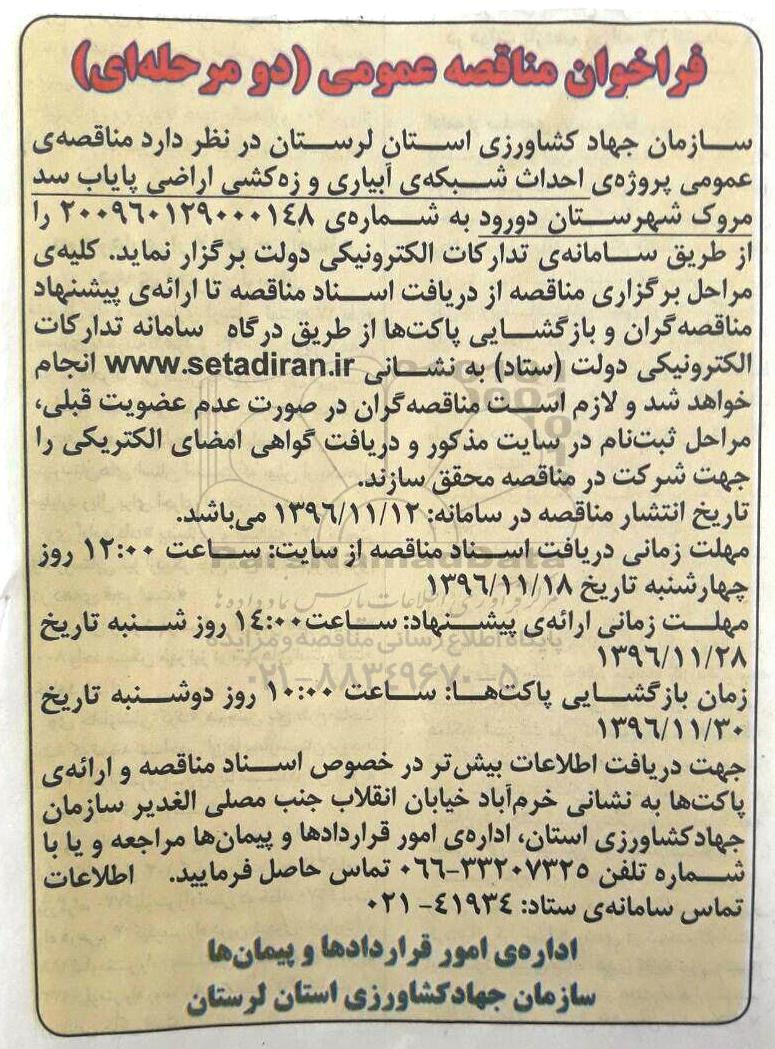 فراخوان مناقصه عمومی (دو مرحله‌ای)
سازمان جهاد کشاورزی استان لرستان در نظر دارد مناقصه‌ی
عمومی پروژه‌ی احداث شبکه‌ی آبیاری و زه‌کشی اراضی پایاب سد
مروک شهرستان دورود به شماره‌ی ۲۰۰۹۶۰۱۲۹۰۰۰۱۴۸ را
از طریق سامانه‌ی تدارکات الکترونیکی دولت برگزار نماید. کلیه‌ی
مراحل برگزاری مناقصه از دریافت اسناد مناقصه تا ارائه‌ی پیشنهاد
مناقصه‌گران و بازگشایی پاکت‌ها از طریق درگاه سامانه تدارکات
الکترونیکی دولت (ستاد) به نشانی www.setadiran.ir انجام
خواهد شد و لازم است مناقصه‌گران در صورت عدم عضویت قبلی،
مراحل ثبت‌نام در سایت مذکور و دریافت گواهی امضای الکتریکی را
جهت شرکت در مناقصه محقق سازند.
تاریخ انتشار مناقصه در سامانه: ۱۳۹۶/۱۱/۱۲ می‌باشد.
مهلت زمانی دریافت اسناد مناقصه از سایت: ساعت ۱۲:۰۰ روز
ParsNamadData
چهارشنبه تاریخ ۱۳۹۶/۱۱/۱۸
مهلت زمانی ارائه‌ی پیشنهاد: ساعت ۱۴:۰۰ روز شنبه تاریخ
پایگاه اطلاع رسانی مناقصه و مزایده
۱۳۹۶/۱۱/۲۸
۰۲۱-۸۸۳۴۹۶۷۰-۵
زمان بازگشایی پاکت‌ها: ساعت ۱۰:۰۰ روز دوشنبه تاریخ
۱۳۹۶/۱۱/۳۰
جهت دریافت اطلاعات بیش‌تر در خصوص اسناد مناقصه و ارائه‌ی
پاکت‌ها به نشانی خرم‌آباد خیابان انقلاب جنب مصلی الغدیر سازمان
جهادکشاورزی استان، اداره‌ی امور قراردادها و پیمان‌ها مراجعه و یا با
شماره تلفن ۳۳۲۰۷۳۲۵-۰۶۶ تماس حاصل فرمایید. اطلاعات
تماس سامانه‌ی ستاد: ۴۱۹۳۴-۰۲۱
اداره‌ی امور قراردادها و پیمان‌ها
سازمان جهادکشاورزی استان لرستان